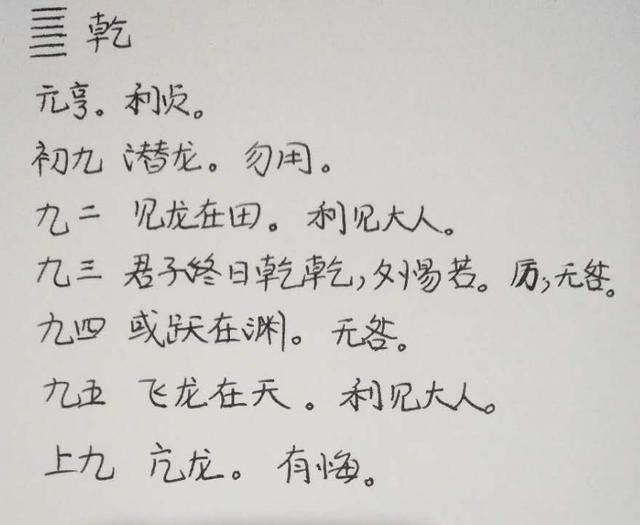 ䷀ 乾
元亨。利贞。
初九 潜龙。勿用。
九二 见龙在田。利见大人。
九三 君子终日乾乾,夕惕若。厉,无咎。
九四 或跃在渊。无咎。
九五 飞龙在天。利见大人。
上九 亢龙。有悔。